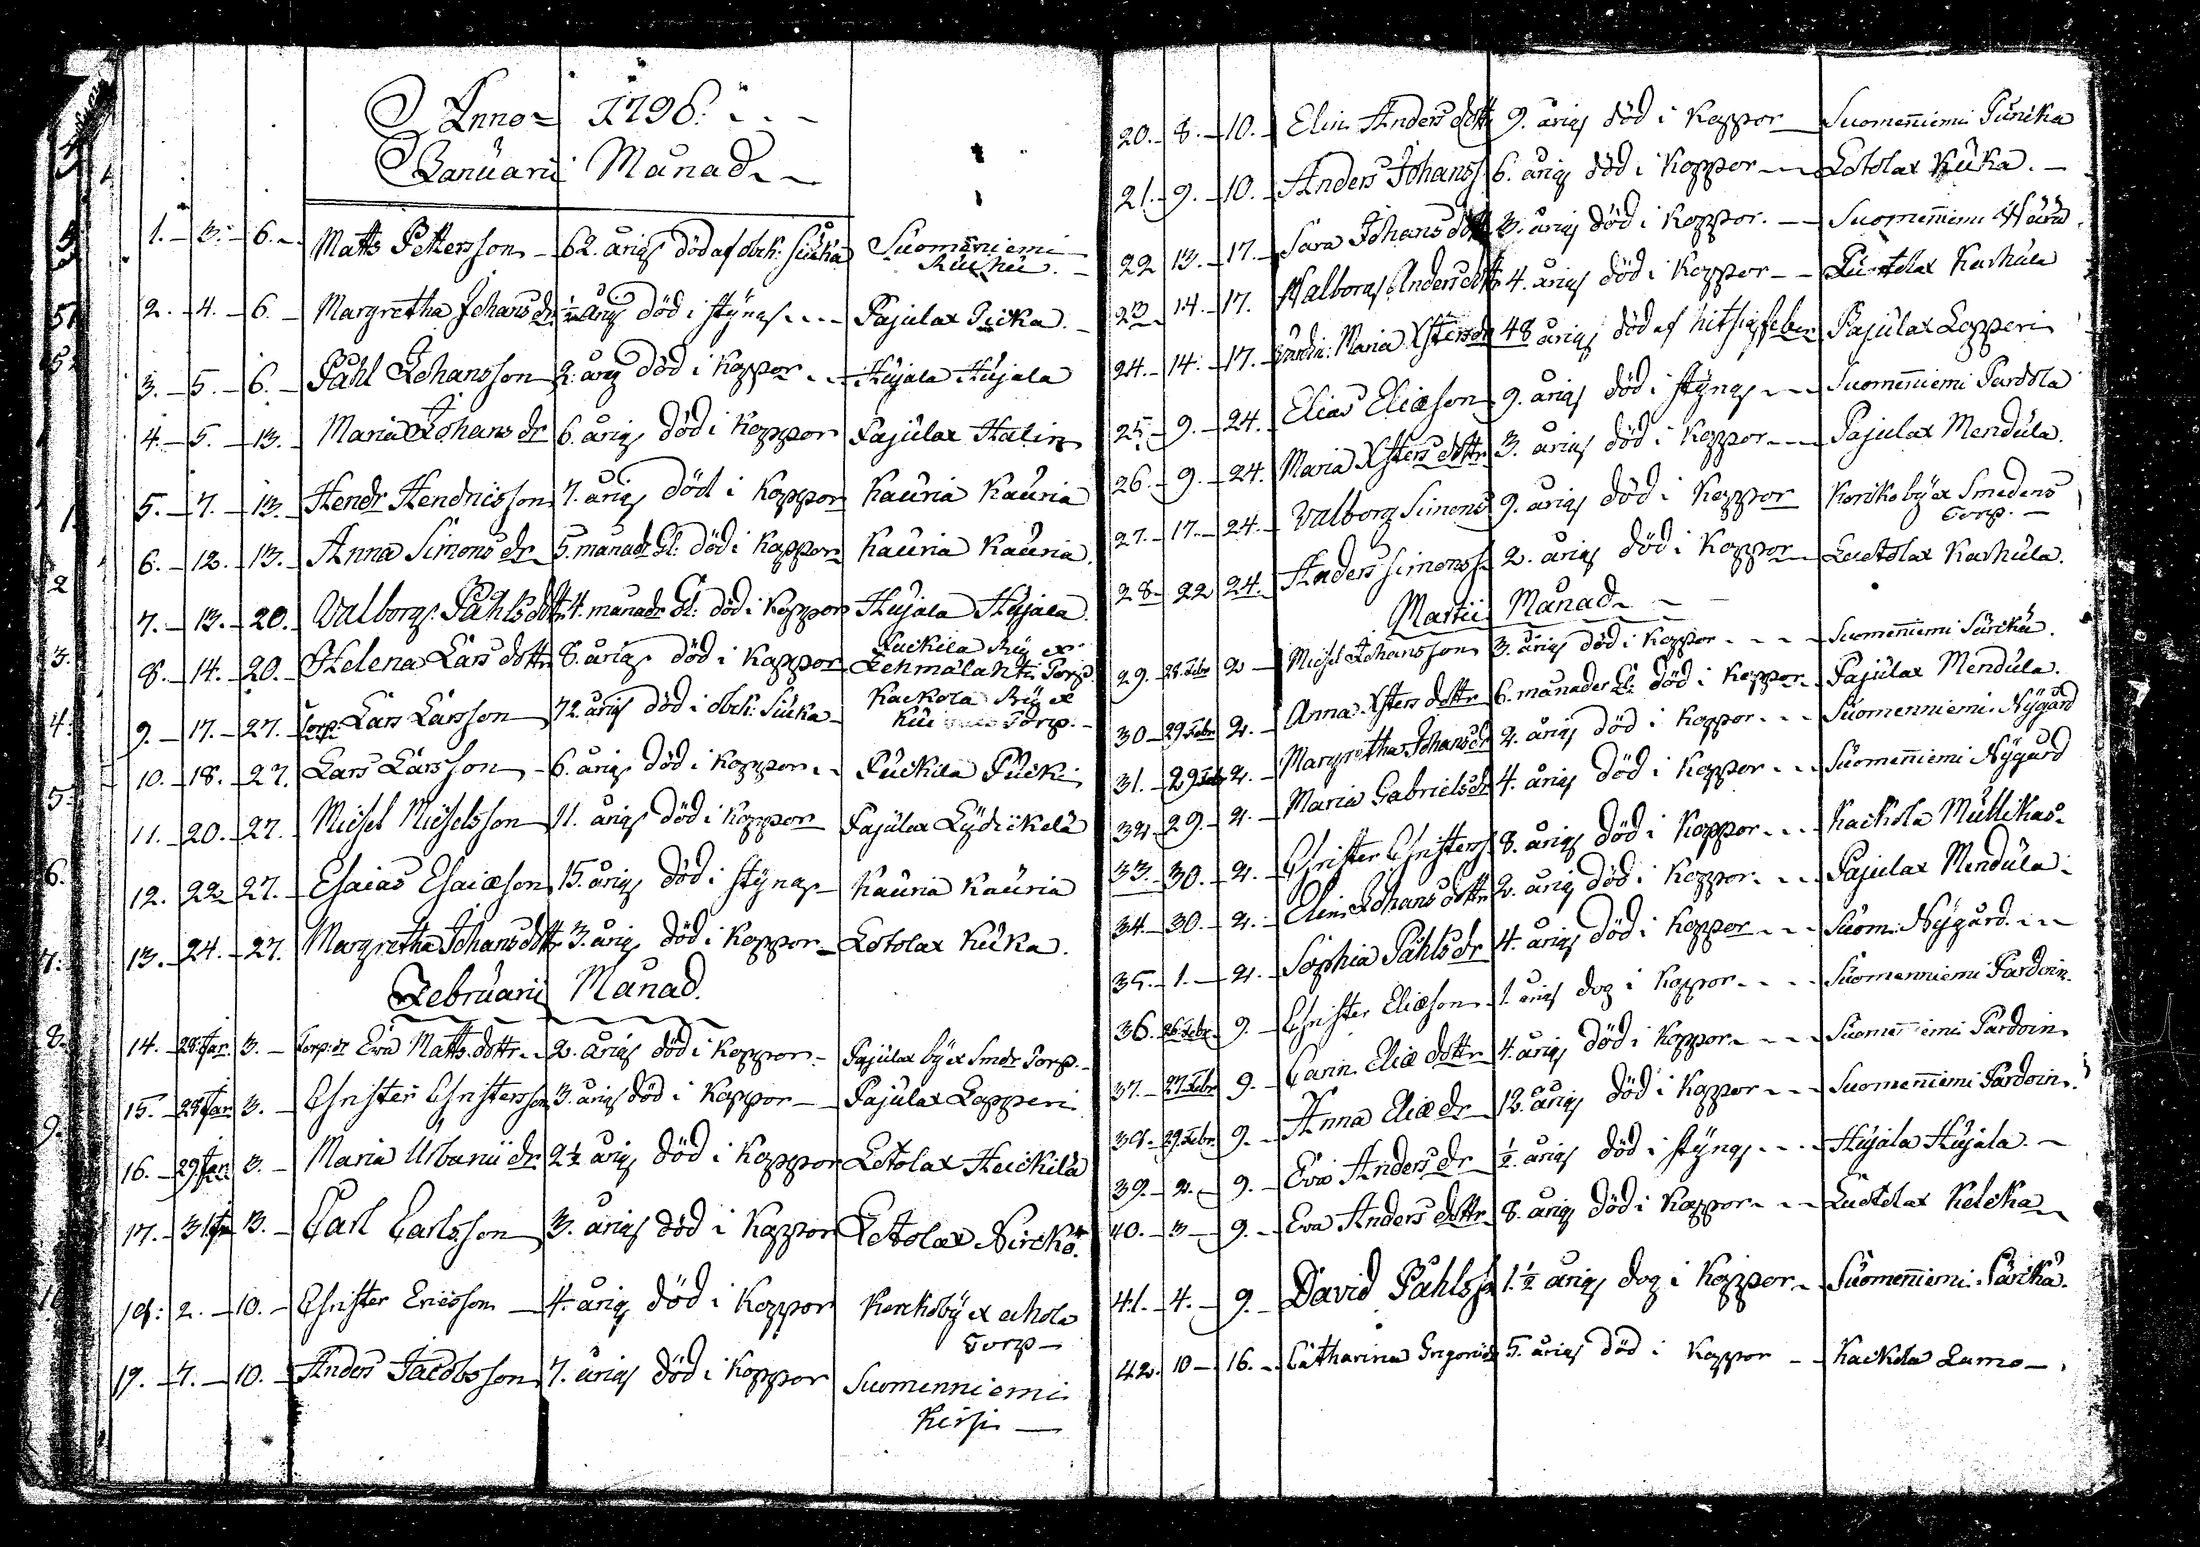 Anno 1796.
Januarii Månad
1. 3. 6. Matts Pettersson 62. årig död af obek: siuka Suomeniemi
2. 4. 6. Margretha Johans dr ½ årig död i styng Pajulax
3. 5. 6. Påhl Johansson 2. årig död i koppor Hujala Hujala
4. 5. 13. Maria Johans dr 6. årig död i koppor Pajulax Halin
5. 7. 13. Hendr Hendricsson 7. årig död i koppor Kauria Kauria
6. 12. 13. Anna Simons dr 5. månad: Gl: död i koppor Kauria Kauria
7. 13. 20. Valborg Påhls dottr 4. månadr Gl: död i koppor Hujala Hujala
8. 14. 20. Helena Lars dottr 8. årig död i koppor Lehmälahti Torp
9. 17. 27. Torp: Lars Larsson 72. årig död i obek: siuka Kackola Torp.
10. 18. 27. Lars Larsson 6. årig död i koppor
11. 20. 27. Michel Michelsson 11. årig död i koppor Pajulax
12. 22 27. Esaias Esaiæson 15. årig död i styng Kauria Kauria
13. 24. 27. Margretha Johans dottr 3. årig död i koppor Lotolax Kuka.
Februarii Månad.
14. 28. Jan. 3. Torp: dr Eva Matts dottr 2. årig död i koppor Pajulax by ex Smedr Torp.
15. 28 Jan 3. Christer Christersson 3. årig död i koppor Pajulax Lopperi
16. 29 Jan 3. Maria Urbanii dr 2½ årig död i koppor Lotolax Heickilä
17. 31. Jan 3. Carl Carlsson 3. årig död i koppor Lotolax Nirckö.
18. 2. 10. Christer Ericsson 4. årig död i koppor
Torp
19. 7. 10. Anders Jacobsson 7. årig död i koppor Suomenniemi
Kirsi
20. 8. 10. Elin Anders dottr 9. årig död i koppor Suomenniemi
21. 9. 10. Anders Johanss 6. årig död i koppor Lotolax Kuka.
22 13. 17. Sara Johans dottr 3. årig död i koppor. Suomenniemi
23 14. 17. Walborg Anders dottr 4. årig död i koppor Luotolax Karhula
24. 14. 17. Maria Xsters dr 48 årig död af hitsig feber Pajulax Lopperi
25. 9. 24. Elias Eliæson 9. årig död i styng Suomenniemi Pardola
26. 9. 24. Maria Xsters dottr 3. årig död i koppor Pajulax Mendula.
27. 17. 24. Valborg Simons 9. årig död i koppor Korkoby ex Smedens
Torp.
28. 22 24. Anders Simonss 2. årig död i koppor Luotolax Karhula.
Martii Månad
29. 28. Febr 2 Michel Johansson 3. årig död i koppor Suomenniemi
30. 29 Febr 2. Anna Xsters dottr 6. månader Gl: död i koppor Pajulax Mendula.
31. 29 Feb 2. Margretha Johans dr 2. årig död i koppor Suomenniemi Nygård
32. 29. 2. Maria Gabriels dr 4. årig död i koppor Suomenniemi Nygård
33. 30. 2. Christer Christerss 8. årig död i koppor Kackola
34. 30. 2. Elin Johans dottr 2. årig död i koppor Pajulax Mendula
35. 1. 2. Sophia Påhls dr 4. årig död i koppor Suom: Nygård.
36. 26. Febr 9. Christer Eliæson 1. årig dog i koppor Suomenniemi Pardoin
37. 27. Febr 9. Carin Eliæ dottr 4. årig död i koppor Suomenniemi Pardoin
38. 29. Febr 9. Anna Eliæ dr 12. årig död i koppor Suomenniemi Pardoin.
39. 2. 9. Eva Anders dr ½. årig död i styng Hujala Hujala.
40. 3 9. Eva Anders dottr 8. årig död i koppor Luotolax
41. 4. 9. David Påhlss 1.½ årig dog i koppor Suomenniemi
42. 10 16. Catharina 5. årig död i koppor Kackola